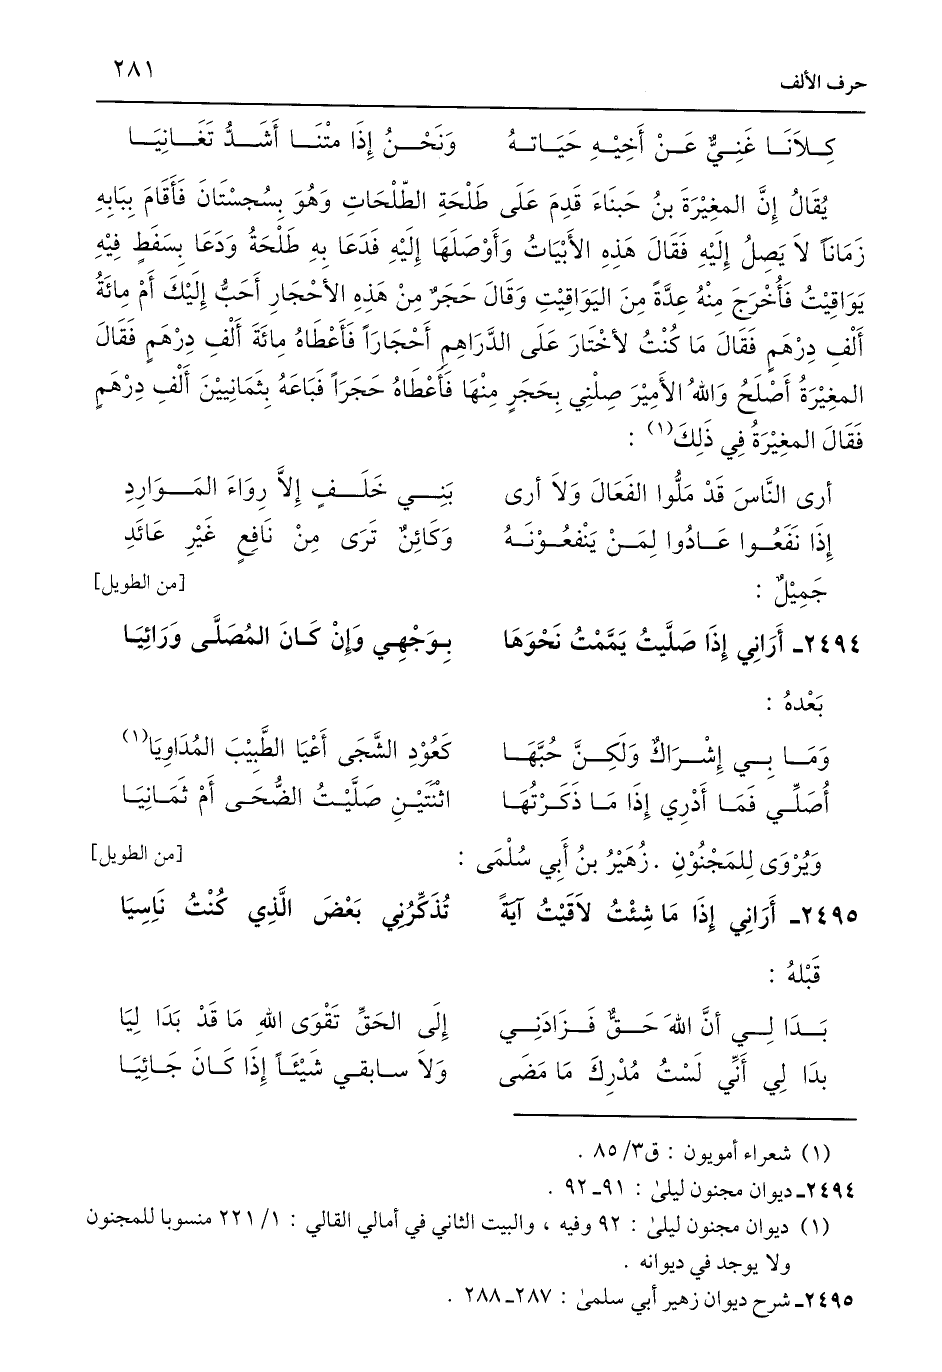 حرف الألف ٢٨١
كِلاَنَا غَنِيٌّ عَنْ أَخِيْهِ حَيَاتهُ وَنَحْنُ إِذَا مِتْنَا أَشَدُّ تَغَانِيَا
يُقَالُ إِنَّ المغِيْرَةَ بنُ حَبنَاءَ قَدِمَ عَلَى طَلْحَةِ الطَّلْحَاتِ وَهُوَ بِسُجسْتَانَ فَأَقَامَ بِبَابِهِ
زَمَانَاً لاَ يَصِلُ إِلَيْهِ فَقَالَ هَذِهِ الأَبْيَاتُ وَأَوْصَلَهَا إِلَيْهِ فَدَعَا بِهِ طَلْحَةُ وَدَعَا بِسَفَطٍ فِيْهِ
يَوَاقِيْتُ فَأُخْرَجَ مِنْهُ عِدَّةً مِنَ اليَوَاقِيْتِ وَقَالَ حَجَرٌ مِنْ هَذِهِ الأَحْجَارِ أَحَبُّ إِلَيْكَ أَمْ مِائَةُ
أَلْفِ دِرْهَمٍ فَقَالَ مَا كُنْتُ لأَخْتَارَ عَلَى الدَّرَاهِمِ أَحْجَارَاً فَأَعْطَاهُ مِائَةَ أَلْفِ دِرْهَمٍ فَقَالَ
المغِيْرَةُ أَصْلَحُ وَاللهُ الأَمِيْرَ صِلْنِي بِحَجَرٍ مِنْهَا فَأَعْطَاهُ حَجَرَاً فَبَاعَهُ بِثَمَانِيينَ أَلْفِ دِرْهَمٍ
فَقَالَ المغِيْرَةُ فِي ذَلِكَ(١) :
أرى النَّاسَ قَدْ مَلُّوا الفَعَالَ وَلاَ أرى بَنِي خَلَفٍ إِلاَّ رِوَاءَ المَوَارِدِ
إِذَا نَفَعُوا عَادُوا لِمَنْ يَنْفَعُوْنَهُ وَكَائِنٌ تَرَى مِنْ نَافِعٍ غَيْرِ عَائِدِ
جَمِيْلٌ : [من الطويل]
٢٤٩٤ـ أَرَانِي إِذَا صَلَّيتُ يَمَّمْتُ نَحْوَهَا بِوَجْهِي وَإِنْ كَانَ المُصَلَّى وَرَائِيَا
بَعْدهُ :
وَمَا بِي إِشْرَاكٌ وَلَكِنَّ حُبَّهَا كَعُوْدِ الشَّجَى أَعْيَا الطَّبِيْبَ المُدَاوِيَا(١)
أُصَلِّي فَمَا أَدْرِي إِذَا مَا ذَكَرْتُهَا اثْنَتَيْنِ صَلَّيْتُ الضُّحَى أَمْ ثَمَانِيَا
وَيُرْوَى لِلمَجْنُوْنِ . زُهَيْرُ بنُ أَبِي سُلْمَى : [من الطويل]
٢٤٩٥ـ أَرَانِي إِذَا مَا شِئْتُ لاَقَيْتُ آيَةً تُذَكِّرُنِي بَعْضَ الَّذِي كُنْتُ نَاسِيَا
قَبْلهُ :
بَدَا لِي أَنَّ اللهَ حَقٌّ فَزَادَنِي إِلَى الحَقِّ تَقْوَى اللهِ مَا قَدْ بَدَا لِيَا
بدَا لِي أَنِّي لَسْتُ مُدْرِكَ مَا مَضَى وَلاَ سابِقي شَيْئَاً إِذَا كَانَ جَائِيَا
(١) شعراء أمويون : ق٣/ ٨٥ .
٢٤٩٤ـ ديوان مجنون ليلىٰ : ٩١ـ٩٢ .
(١) ديوان مجنون ليلىٰ : ٩٢ وفيه ، والبيت الثاني في أمالي القالي : ١/ ٢٢١ منسوبا للمجنون
ولا يوجد في ديوانه .
٢٤٩٥ـ شرح ديوان زهير أبي سلمىٰ : ٢٨٧ـ٢٨٨ .